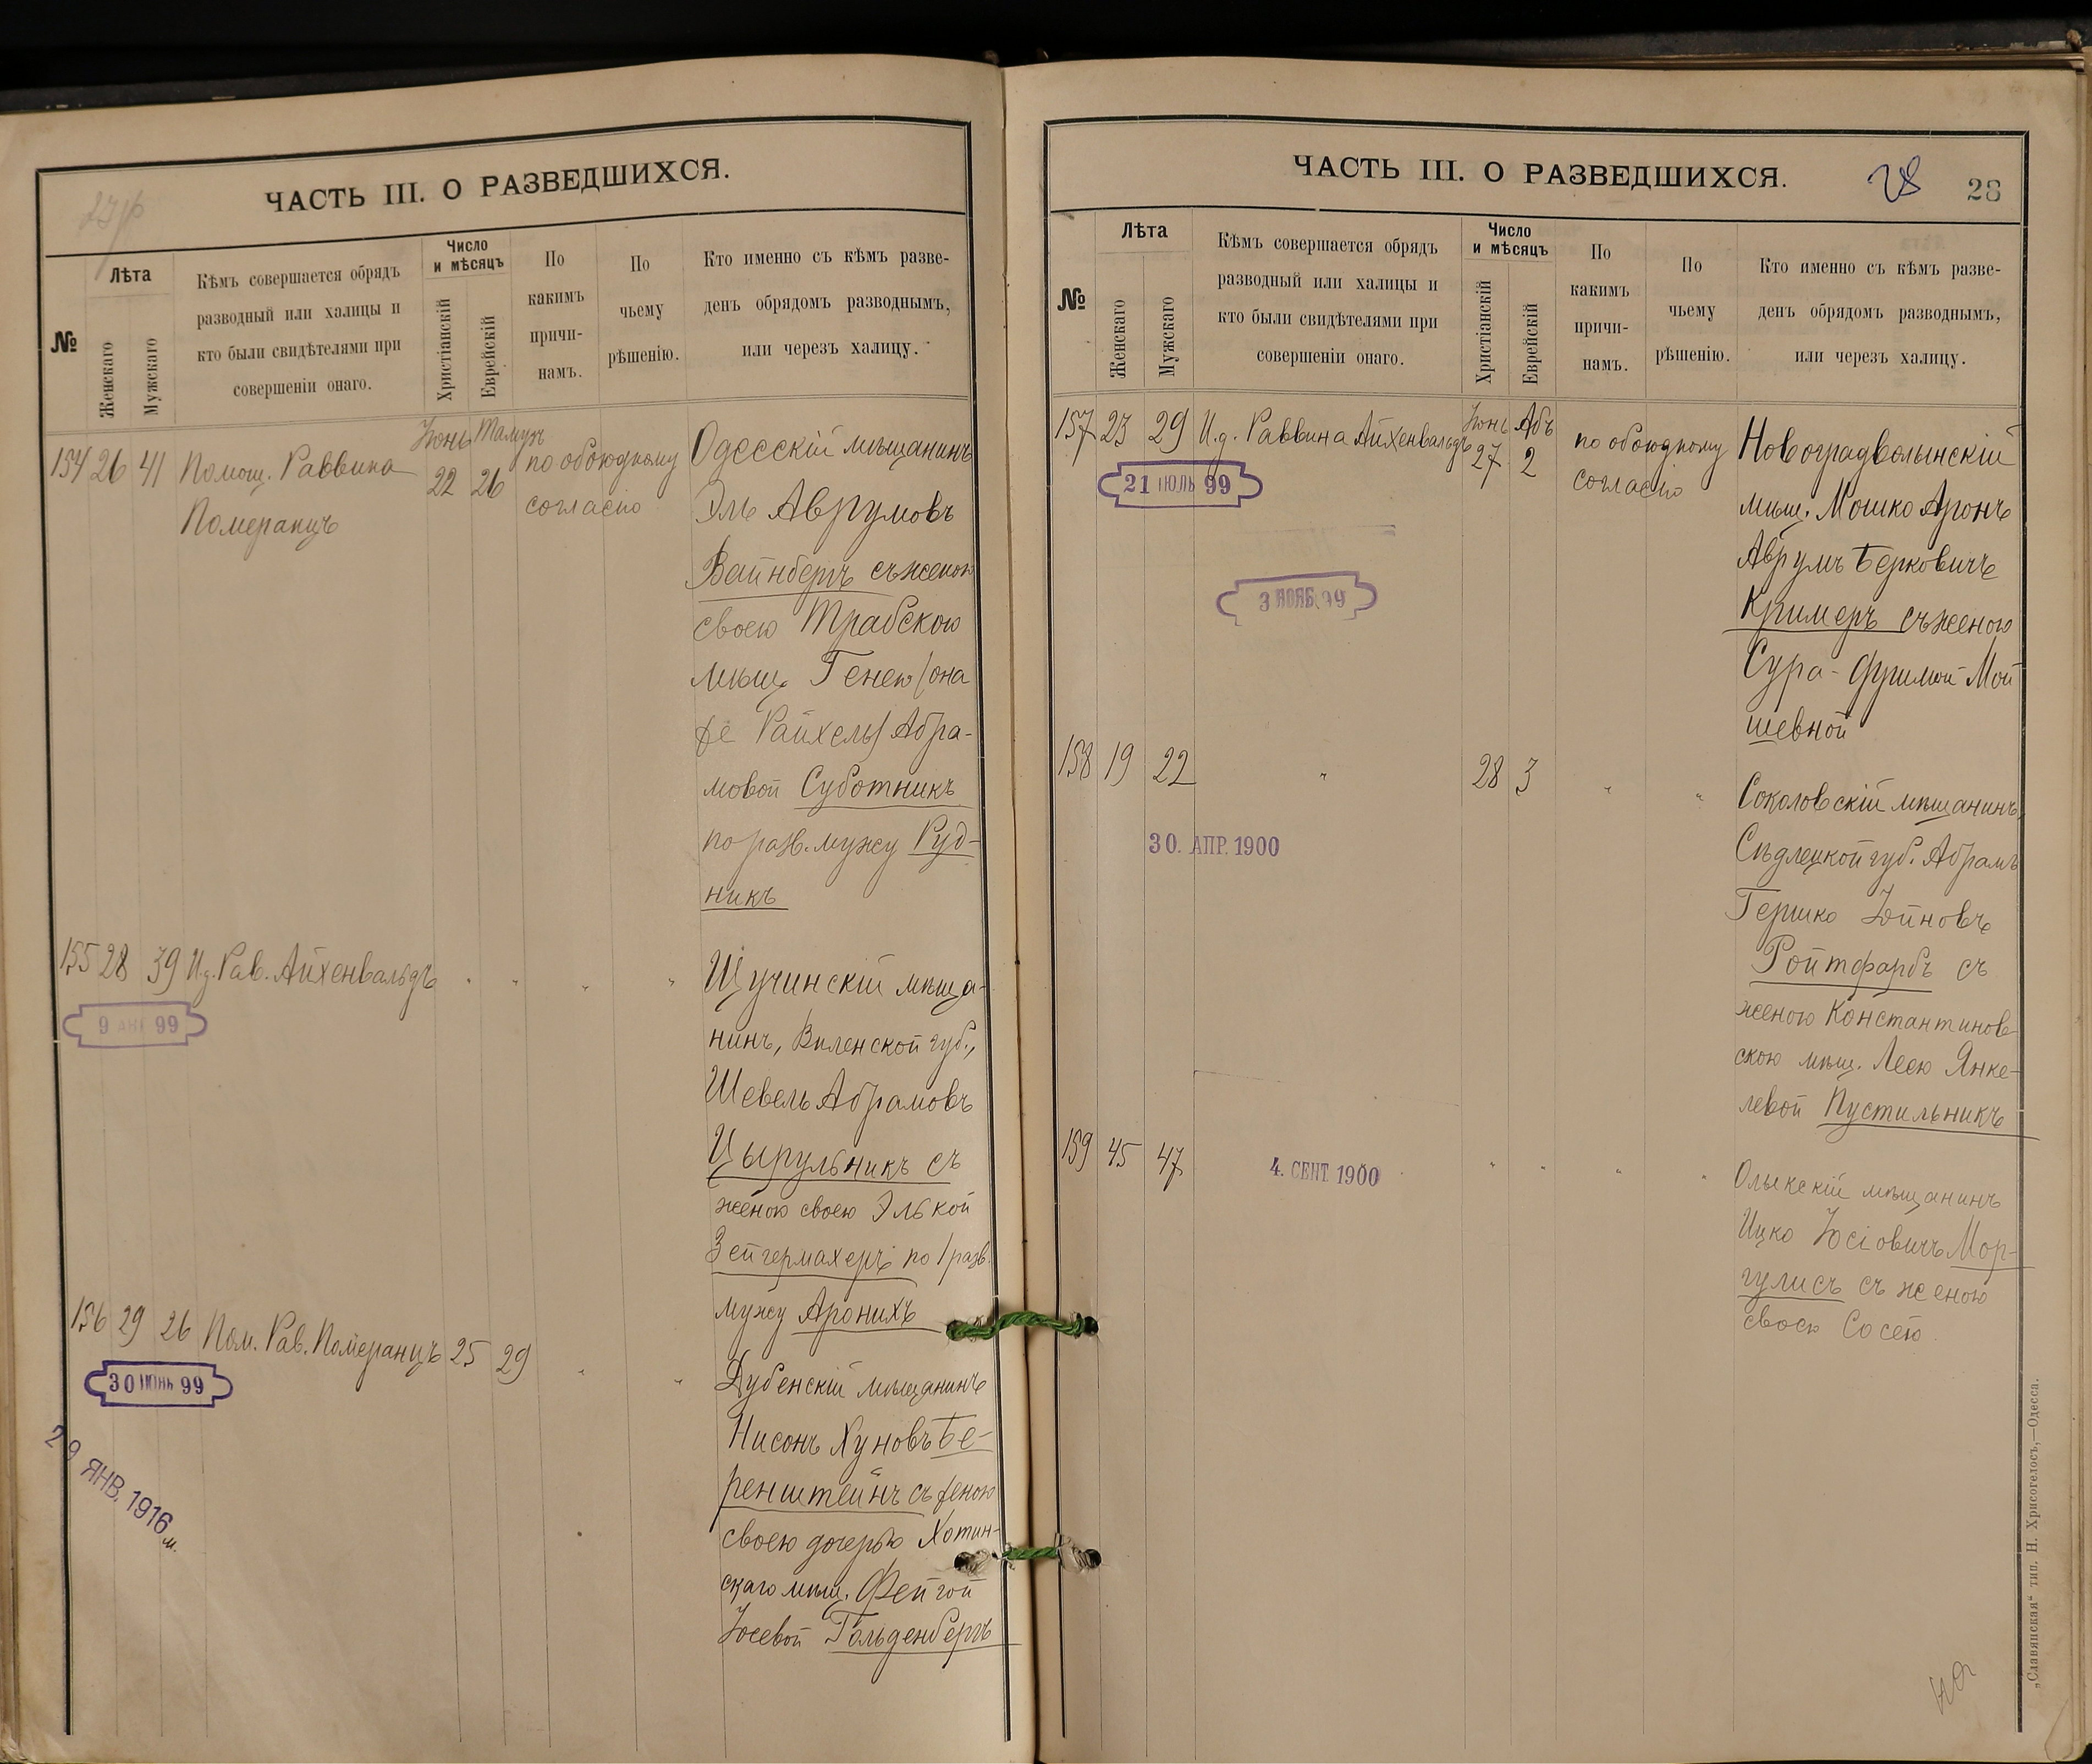 ЧАСТЬ III. О РАЗВЕДШИХСЯ.
№
Лѣта
Женскаго
Мужскаго
Кѣмъ совершается обрядъ
разводный или халицы и
кто были свидѣтелями при
совершеніи онаго.
Число
и мѣсяцъ
Христіанскій
Еврейскій
По
какимъ
причи-
намъ.
По
чьему
рѣшенію.
Кто именно съ кѣмъ разве-
денъ обрядомъ разводнымъ,
или через​ъ халицу.
154 26 41 Помощ. Раввина
Померанцъ
Іюнь Тамузъ
22 26
по обоюдному
согласію
Одесскій мѣщанинъ
Эль Аврумовъ
Вайнбергъ съ женою
своею Трабскою
мѣщ. Генею (она
же Райхель) Абра-
мовой Суботникъ
по разв. мужу Руд-
никъ
155 28 39 И.д. Рав. Айхенвальдъ " " " "
9 АВГ 99
Щучинскій мѣща-
нинъ, Виленской губ.,
Шевель Абрамовъ
Цырульникъ съ
женою своею Элькой
Зейгермахеръ по 1 разв.
мужу Аронихъ
156 29 26 Пом. Рав. Померанцъ 25 29 " "
30 ІЮНЬ 99
29 ЯНВ. 1916
Дубенскій мѣщанинъ
Нисонъ Хуновъ Бе-
ренштейнъ съ женою
своею дочерью Хотин-
скаго мѣщ. Фейгой
Іосевой Гольденбергъ
ЧАСТЬ III. О РАЗВЕДШИХСЯ.
28
28
№
Лѣта
Женскаго
Мужскаго
Кѣмъ совершается обрядъ
разводный или халицы и
кто были свидѣтелями при
совершеніи онаго.
Число
и мѣсяцъ
Христіанскій
Еврейскій
По
какимъ
причи-
намъ.
По
чьему
рѣшенію.
Кто именно съ кѣмъ разве-
денъ обрядомъ разводнымъ,
или черезъ халицу.
157 23 29 И.д. Раввина Айхенвальдъ
Іюнь Абъ
27 2
по обоюдному
согласію
21 ІЮЛЬ 99
3 НОЯБ. 99
Новоградволынскій
мѣщ. Мошко Аронъ
Аврумъ Берковичъ
Кримеръ съ женою
Сура-Фримой Мой
шевной
158 19 22 " 28 3 " "
30. АПР. 1900
Соколовскій мѣщанинъ,
Сѣдлецкой губ. Абрамъ
Гершко Іойновъ
Ройтфарбъ съ
женою Константинов-
скою мѣщ. Леею Янке-
левой Пустильникъ
159 45 47 " " " "
4. СЕНТ. 1900
Олыкскій мѣщанинъ
Ицко Іосіовичъ Мор-
гулисъ съ женою
своею Сосею.
„Славянская“ тип. Н. Хрисогелосъ,—Одесса.